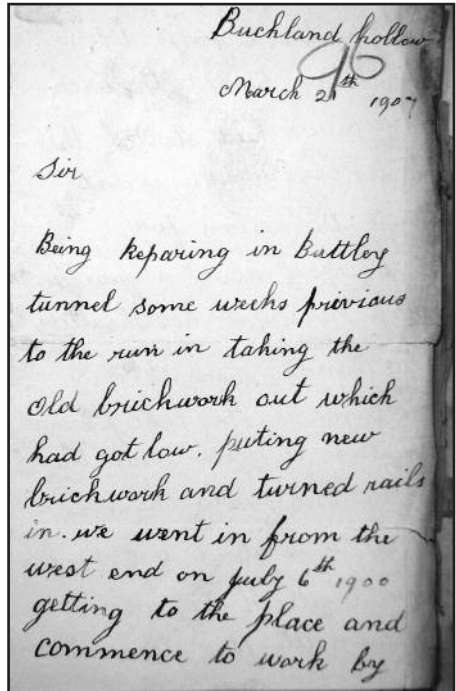 Buckland hollow
96
March 21th 1907
Sir
Being Reparing in Buttley
tunnel some weeks previous
to the run in taking the
old brickwork out which
had got low. puting new
brickwork and turned rails
in. we went in from the
west end on July 6th 1900
getting to the place and
commence to work by